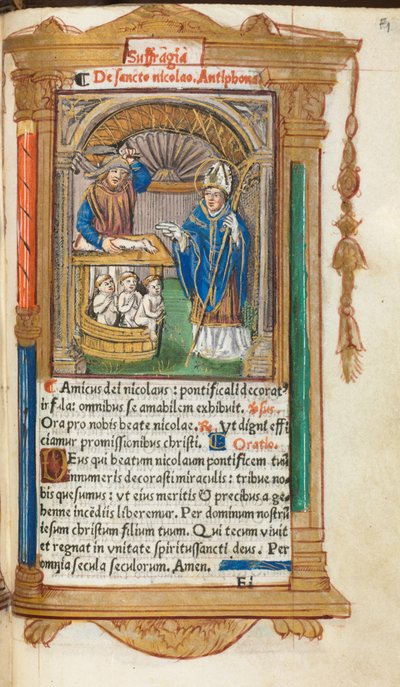 Suffragia
De sancto nicolao. Antiphona
Amicus dei nicolaus : pontificali decorat⁹
ifula: omnibus se amabilem exhibuit. ℣sus.
Ora pro nobis beate nicolae. ℞. Ut digni effi
ciamur promissionibus christi. Oratio.
DEus qui beatum nicolaum pontificem tuū
innumeris decorasti miraculis : tribue no-
bis quesumus : ut eius meritis & precibus a ge-
henne incēdiis liberemur. Per dominum nostrū
iesum christum filium tuum. Qui tecum vivit
et regnat in unitate spiritussancti deus. Per
omnia secula seculorum. Amen.